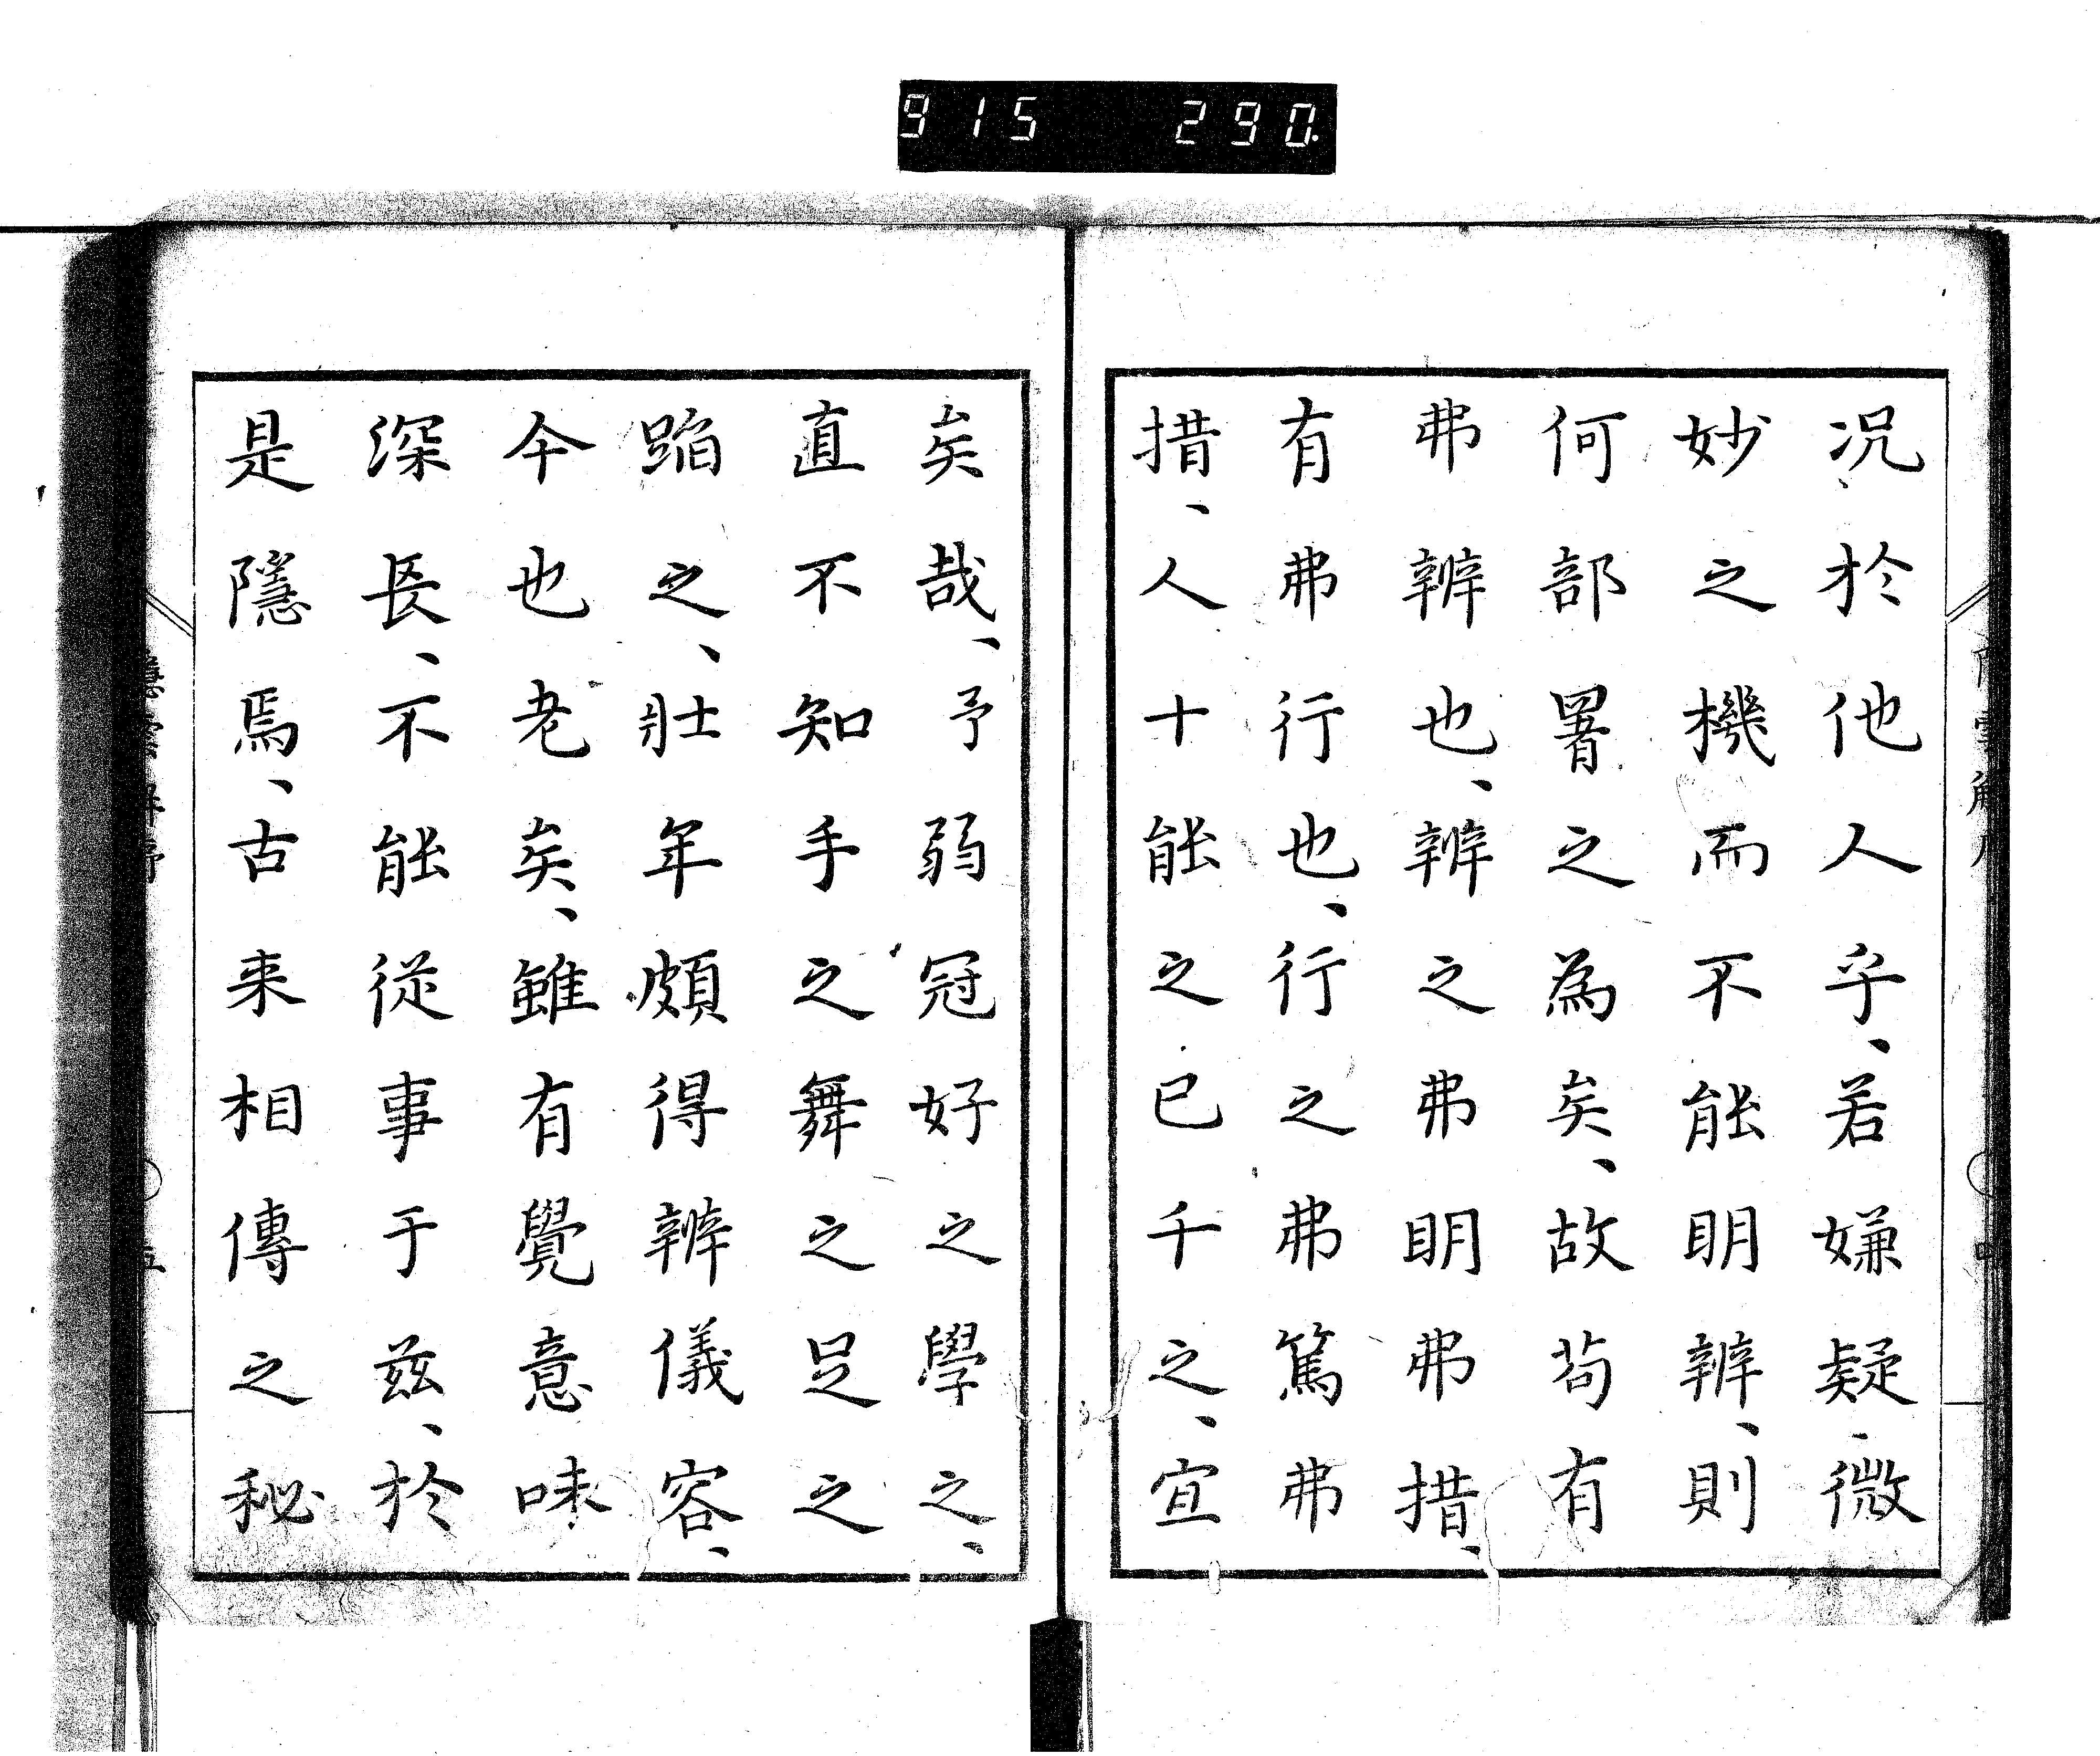 915 290.
况、於他人乎、若嫌疑、微
妙之機而不能明辨、則
何部署之為矣、故苟有
弗辨也、辨之弗明弗措、
有弗行也、行之弗篤弗
措、人十能之已千之、宜
矣哉、予弱冠好之學之、
直不知手之舞之足之
蹈之、壯年頗得辨儀容、
今也老矣、雖有覺意味
深長、不能従事于茲、於
是隱焉、古来相傳之秘